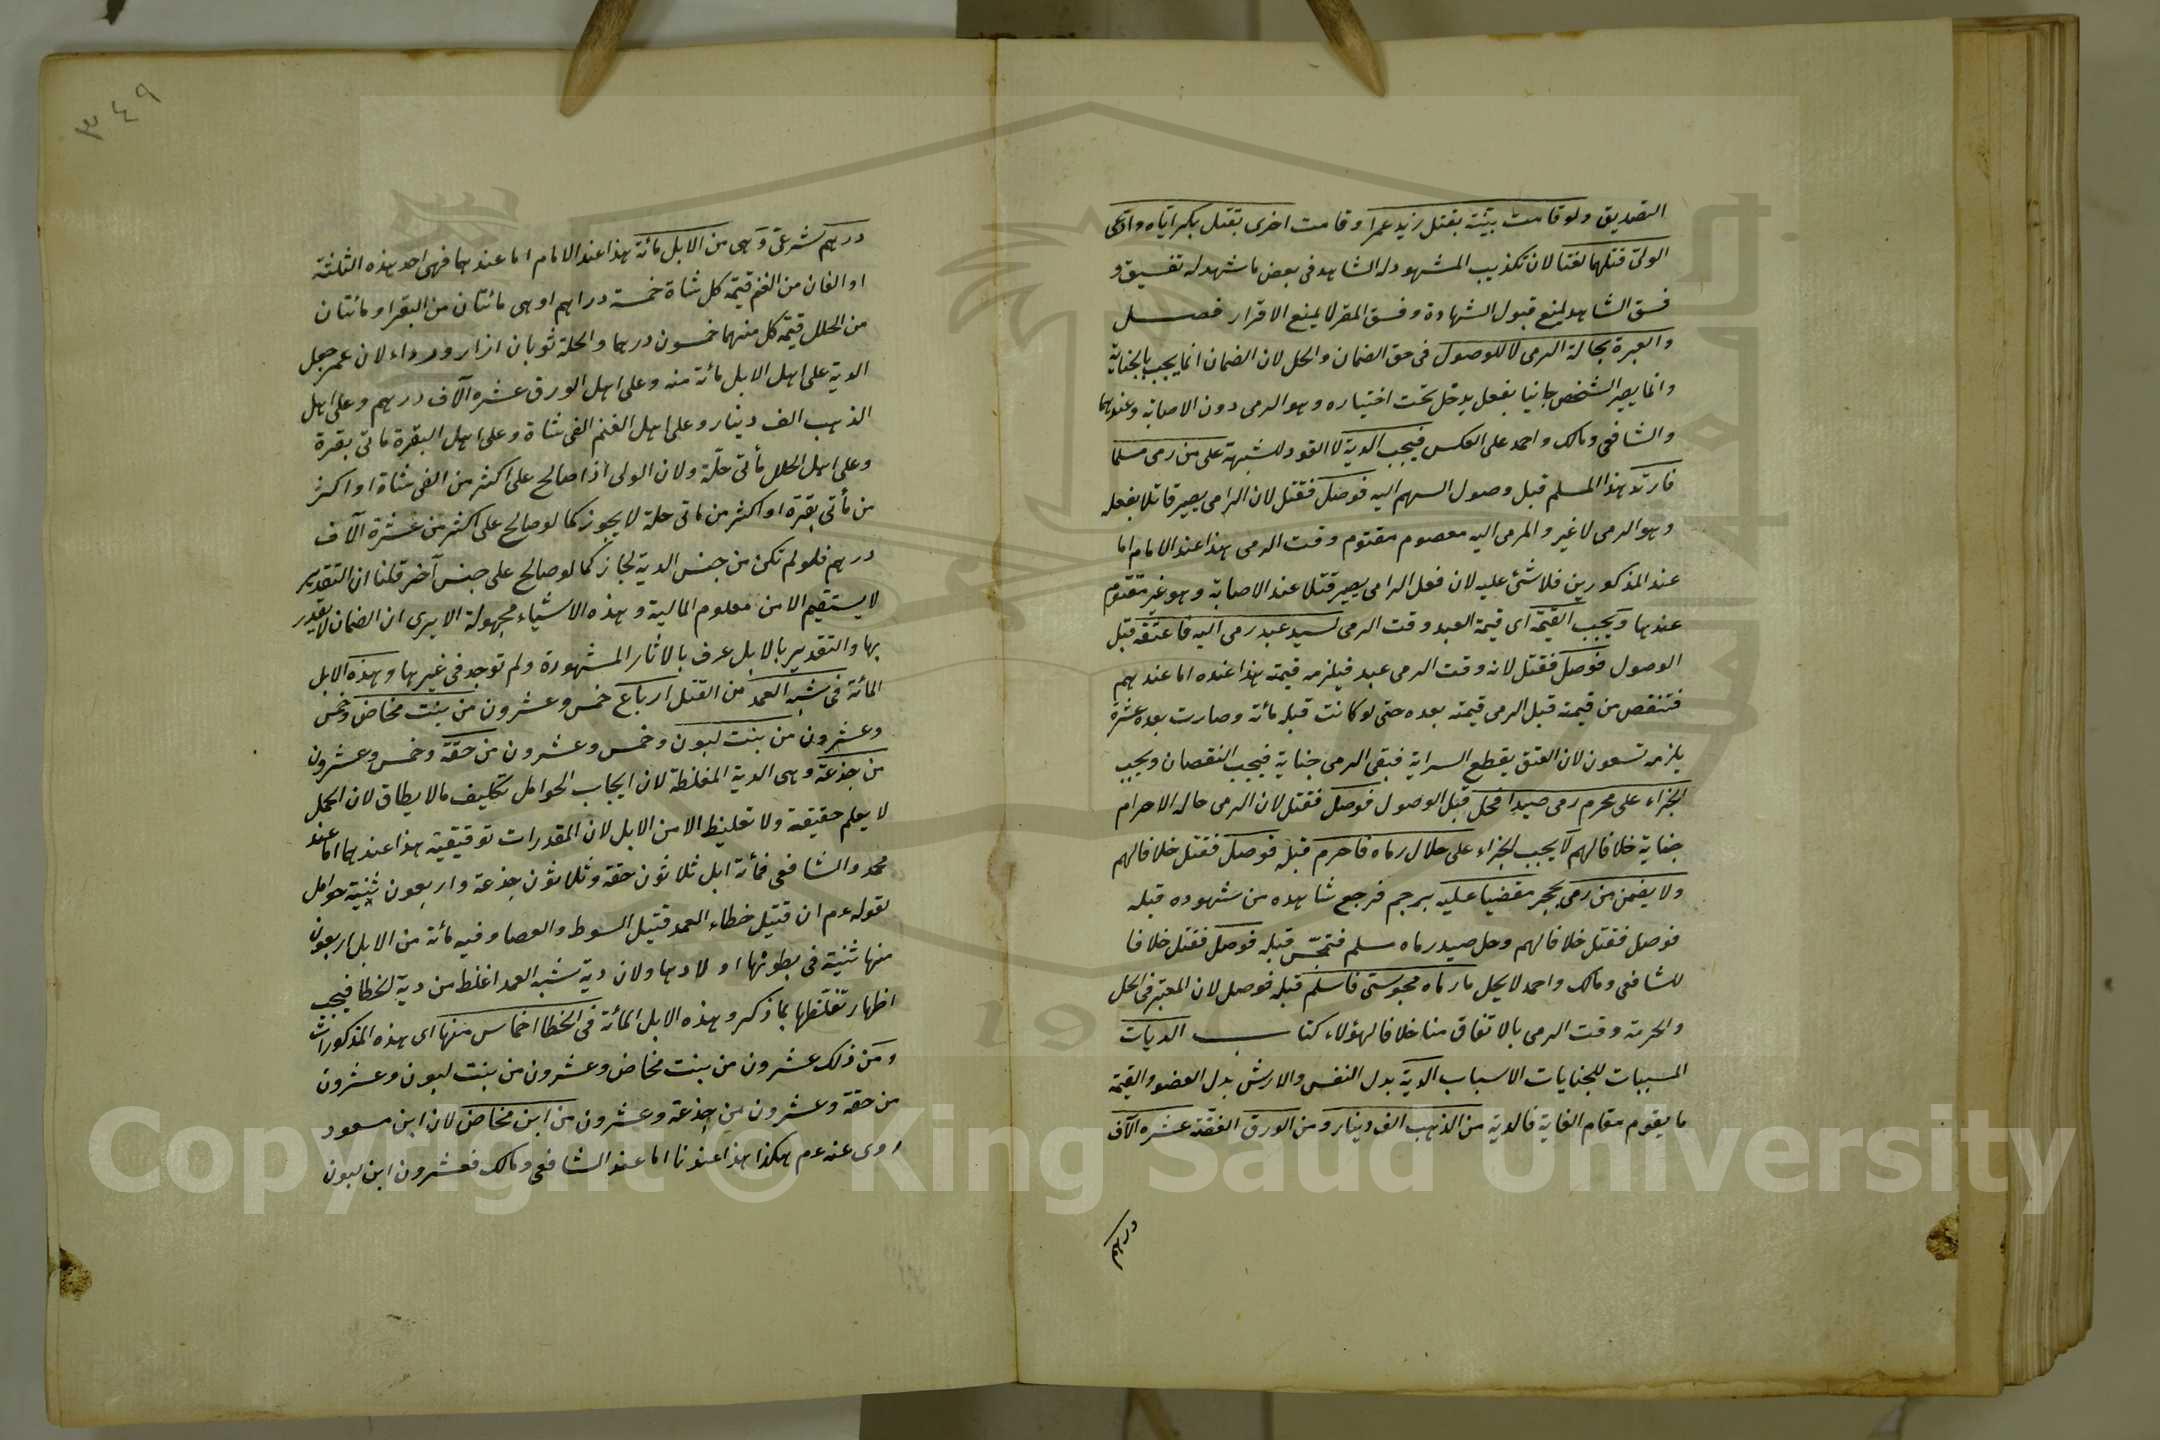 التصديق ولو قامت بينة بقتل زيد عمرا وقامت اخرى بقتل بكر اياه وادعى
الولى قتلهما لغتا لان تكذيب المشهود له الشاهد فى بعض ما شهد له تفسيق و
فسق الشاهد يمنع قبول الشهادة وفسق المقر لا يمنع الاقرار فصل
والعبرة بحالة الرمى لا للوصول فى حق الضمان والحل لان الضمان انما يجب بالجناية
وانما يصير الشخص جانيا بفعل يدخل تحت اختياره وهو الرمى دون الاصابة وعندهما
والشافعى ومالك واحمد على العكس فيجب الدية لا القود للشبهة على من رمى مسلما
فارتد هذا المسلم قبل وصول السهم اليه فوصل فقتل لان الرامى يصير قاتلا بفعله
وهو الرمى لا غير والمرمى اليه معصوم متقوم وقت الرمى هذا عند الامام اما
عند المذكورين فلا شئ عليه لان فعل الرامى يصير قتلا عند الاصابة وهو غير متقوم
عندها ويجب القيمة اى قيمة العبد وقت الرمى لسيد عبد رمى اليه فاعتقه قبل
الوصول فوصل فقتل لانه وقت الرمى عبد فيلزمه قيمته هذا عنده اما عندهم
فتنقص من قيمته قبل الرمى قيمته بعده حتى لو كانت قبله مائة وصارت بعده عشرة
يلزمه تسعون لان العتق يقطع السراية فبقى الرمى جناية فيجب النقصان ويجب
الجزاء على محرم رمى صيدا فحل قبل الوصول فوصل فقتل لان الرمى حالة الاحرام
جناية خلافا لهم لا يجب الجزاء على حلال رماه فاحرم قبله فوصل فقتل خلافا لهم
ولا يضمن من رمى بحجر مقضيا عليه برجم فرجع شاهده من شهوده قبله
فوصل فقتل خلافا لهم وحل صيد رماه مسلم فتمجس قبله فوصل فقتل خلافا
للشافعى ومالك واحمد لا يحل ما رماه مجوسى فاسلم قبله فوصل لان المعتبر فى الحل
والحرمة وقت الرمى بالاتفاق منا خلافا لهؤلاء كتاب الديات
المسببات للجنايات الاسباب الدية بدل النفس والارش بدل العضو والقيمة
ما يقوم مقام الفاية فالدية من الذهب الف دينار ومن الورق الفضة عشرة الآف
درهم
٣٤٩
درهم شرعى وهى من الابل مائة هذا عند الامام اما عندهما فهى احد هذه الثلثة
او الفان من الغنم قيمة كل شاة خمسة دراهم او هى مائتان من البقر او مائتان
من الحلل قيمة كل منهما خمسون درهما والحلة ثوبان ازار ورداء لان عمر جعل
الدية على اهل الابل مائة منه وعلى اهل الورق عشرة آلاف درهم وعلى اهل
الذهب الف دينار وعلى اهل الغنم الفى شاة وعلى اهل البقرة مأتى بقرة
وعلى اهل الحلل مأتى حلة ولان الولى اذا صالح على اكثر من الفى شاة او اكثر
من مأتى بقرة او اكثر من مأتى حلة لا يجوز كما لو صالح على اكثر من عشرة آلاف
درهم فلو لم تكن من جنس الدية لجاز كما لو صالح على جنس آخر قلنا ان التقدير
لا يستقيم الا من معلوم المالية وهذه الاشياء مجهولة الا يرى ان الضمان لا يقدر
بها والتقدير بالابل عرف بالاثار المشهورة ولم توجد فى غيرها وهذه الابل
المائة فى شبه العمد من القتل ارباع خمس وعشرون من بنت مخاض وخمس
وعشرون من بنت لبون وخمس وعشرون من حقة وخمس وعشرون
من جذعة وهى الدية المغلظة لان ايجاب الحوامل تكليف ما لا يطاق لان الحمل
لا يعلم حقيقة ولا تغليظ الا من الابل لان المقدرات توقيفية هذا عندهما اما عند
محمد والشافعى فمائة ابل ثلاثون حقة وثلاثون جذعة واربعون ثنية حوامل
لقوله عم ان قتيل خطاء العمد قتيل السوط والعصا وفيه مائة من الابل اربعون
منها ثنية فى بطونها اولادها ولان دية شبه العمد اغلظ من دية الخطا فيجب
اظهار تغلظها بما ذكر وهذه الابل المائة فى الخطا اخماس منها اى هذه المذكورات
ومن ذلك عشرون من بنت مخاض وعشرون من بنت لبون وعشرون
من حقة وعشرون من جذعة وعشرون من ابن مخاض لان ابن مسعود
روى عنه عم هكذا هذا عندنا اما عند الشافعى ومالك فعشرون ابن لبون
Copyright © King Saud University